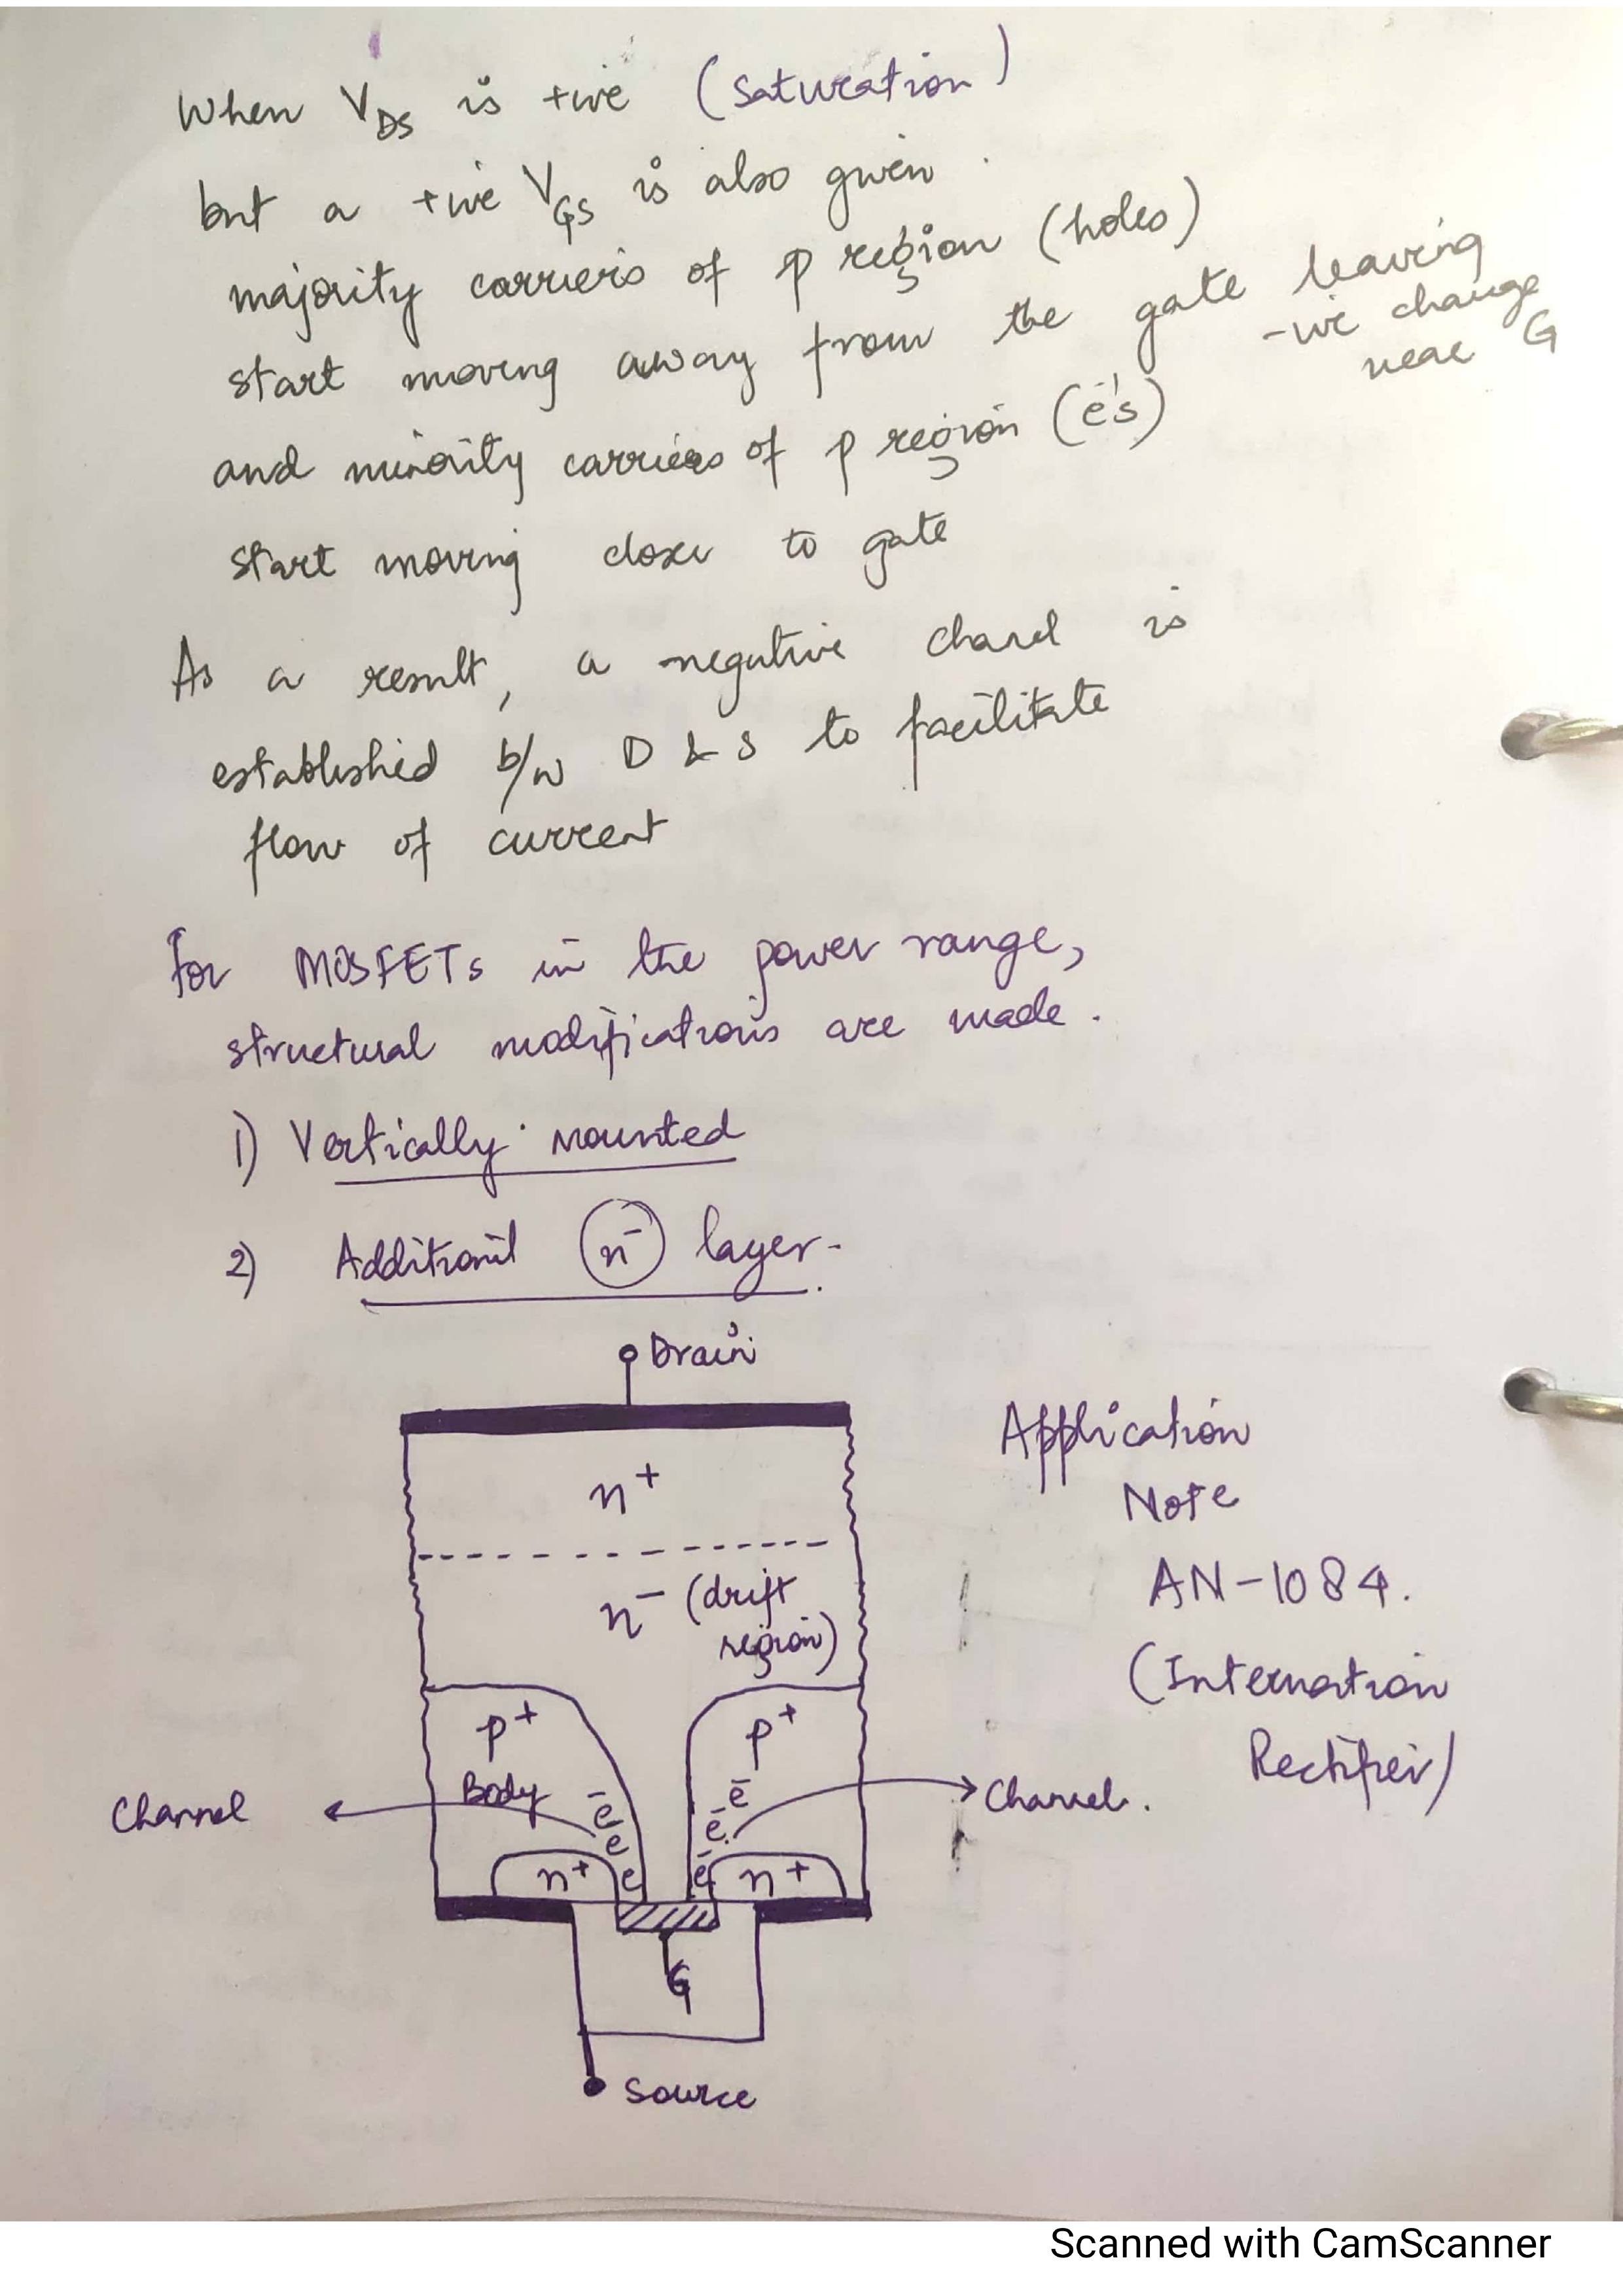 When V_DS is +ive (saturation)
but a +ive V_GS is also given.
majority carriers of p region (holes)
start moving away from the gate leaving
-ve charge
near G
and minority carriers of p region (e⁻'s)
start moving closer to gate
As a result, a negative channel is
established b/w D & S to facilitate
flow of current
For MOSFETs in the power range,
structural modifications are made.
1) Vertically mounted
2) Additional n⁻ layer.
Drain
n⁺
n⁻ (drift
region)
p⁺
p⁺
Body
Channel
Channel.
e⁻
e⁻
e
e⁻
e⁻
e⁻
n⁺
n⁺
G
Source
Application
Note
AN-1084.
(Internation
Rectifier)
Scanned with CamScanner